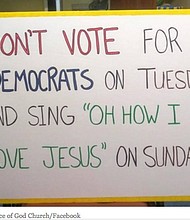 ON'T VOTE FOR
DEMOCRATS ON TUES
ND SING "OH HOW I
OVE JESUS" ON SUNDA
ce of God Church/Facebook